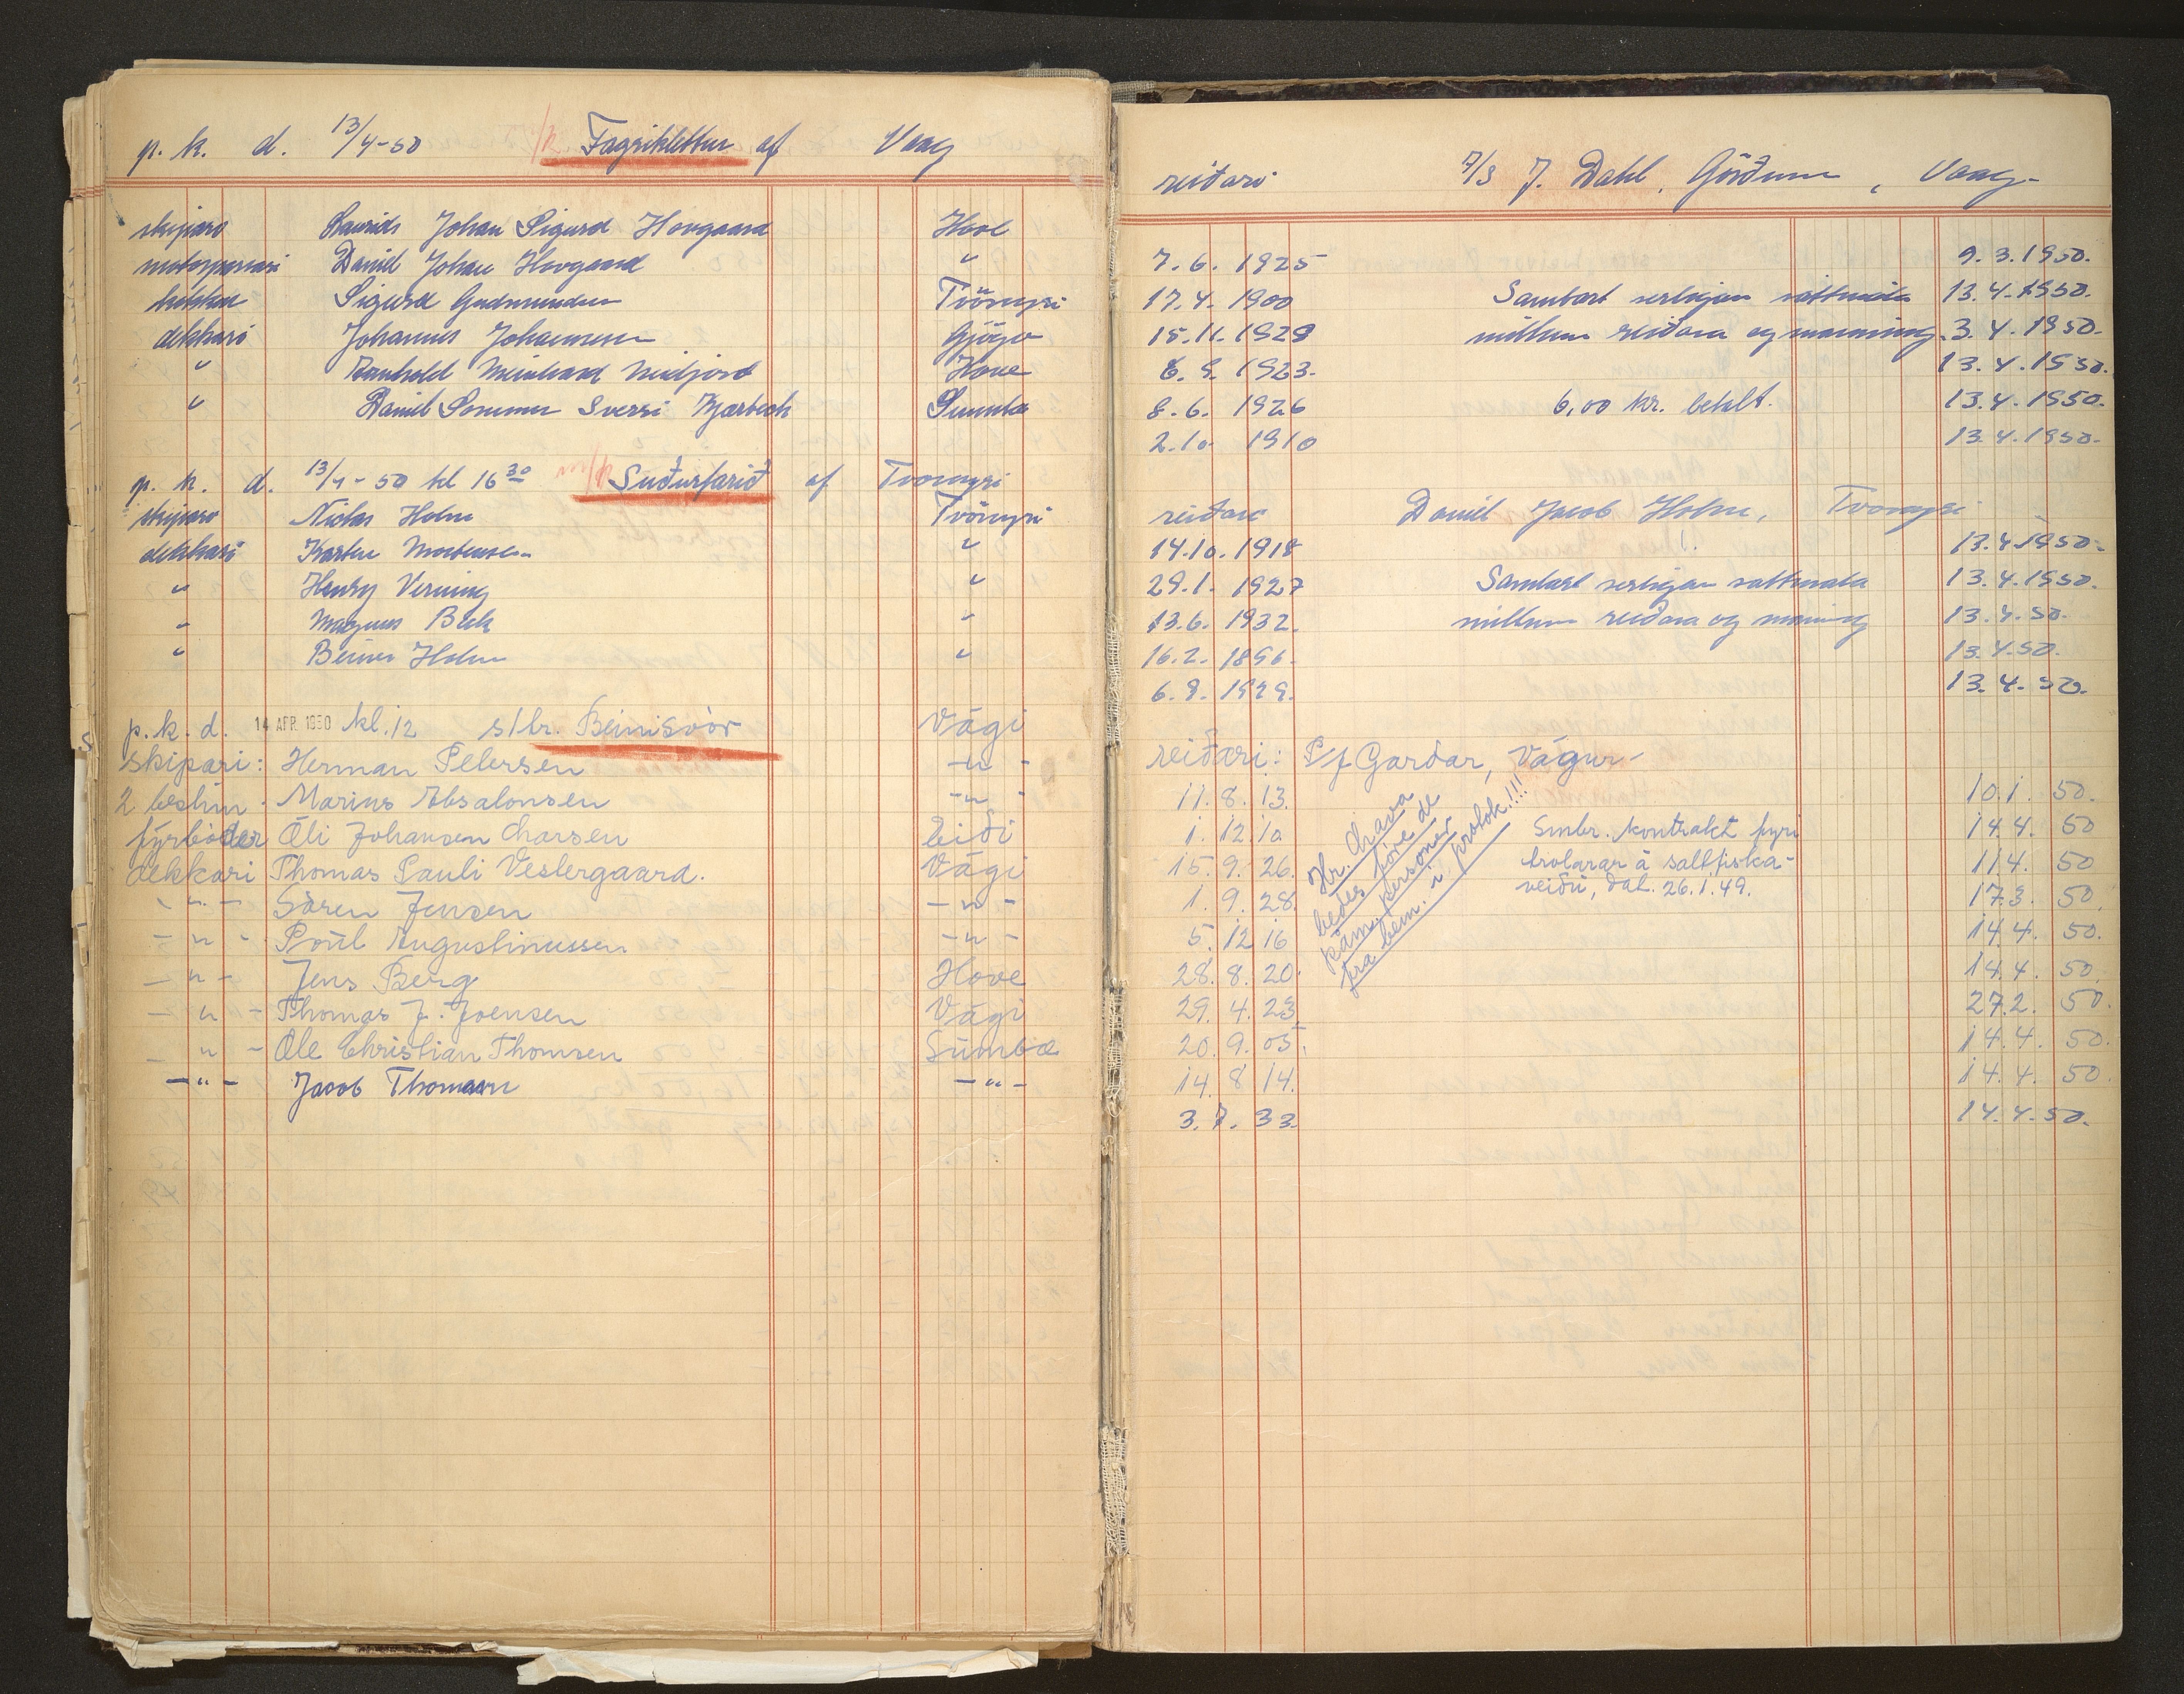 p. k. d. 13/4-50 Fagriklettur af Vaag
skipari Laurids Johan Sigurd Hovgaard Hove
motorpassari Daniel Johan Hovgaard "
kokkur Sigurd Gudmundsen Tvöroyri
dekkari Johannus Johannesen
" Meinhard Midjord Hove
" Daniel Sommer Sverri Kjærbech Sumba
p. k. d. 13/4-50 kl 16 30 m/k Suðurfarið af Tvöroyri
skipari Niclas Holm Tvöroyri
dekkari Karsten Mortensen "
" Henry Verning "
" Magnus Bek "
" Beiner Holm "
p. k. d. 14 APR 1950 kl. 12 s/tr. Beinisvör Vági
skipari: Herman Petersen -"-
2 bestm. Marius Absalonsen -"-
fýrbøder Óli Johansen Eiði
dekkari Thomas Pauli Vestergaard. Vági
-"- Sören Jensen -"-
-"- Poul Augustinussen -"-
-"- Jens Berg Hove
-"- Thomas J. Joensen Vági
-"- Ole Christian Thomsen Sumbø
-"- Jacob Thomsen -"-
reiðari J. Dahl, Görðum, Vaag
7. 6. 1925 9. 3. 1950.
17. 4. 1900 Sambært serligari sáttmála 13. 4. 1950.
15. 11. 1929 millum reiðara og manning 3. 4. 1950.
6. 9. 1923. 13. 4. 1950.
8. 6. 1926 6,00 kr. betalt. 13. 4. 1950.
2. 10. 1910 13. 4. 1950.
reiðari Daniel Jacob Holm, Tvöroyri
14. 10. 1918 13. 4. 1950.
29. 1. 1927 Sambært serligari sáttmála 13. 4. 1950.
13. 6. 1932. millum reiðara og manning 13. 4. 50.
16. 2. 1896. 13. 4. 50.
6. 9. 1929. 13. 4. 50.
reiðari: P/f Garðar, Vágur
11. 8. 13. 10. 1. 50.
1. 12. 10 Smbr. kontrakt fyri 14. 4. 50
15. 9. 26. trolarar á saltfiska- 11. 4. 50
1. 9. 28. veiðu, dat. 26. 1. 49. 17. 3. 50
5. 12 16 14. 4. 50.
28. 8. 20. 14. 4. 50.
29. 4. 23 27. 2. 50.
20. 9. 05. 14. 4. 50.
14. 8 14. 14. 4. 50.
3. 7. 33. 14. 4. 50.
Hr.
bedes føre de
personer
fra bem. i protok.!!!